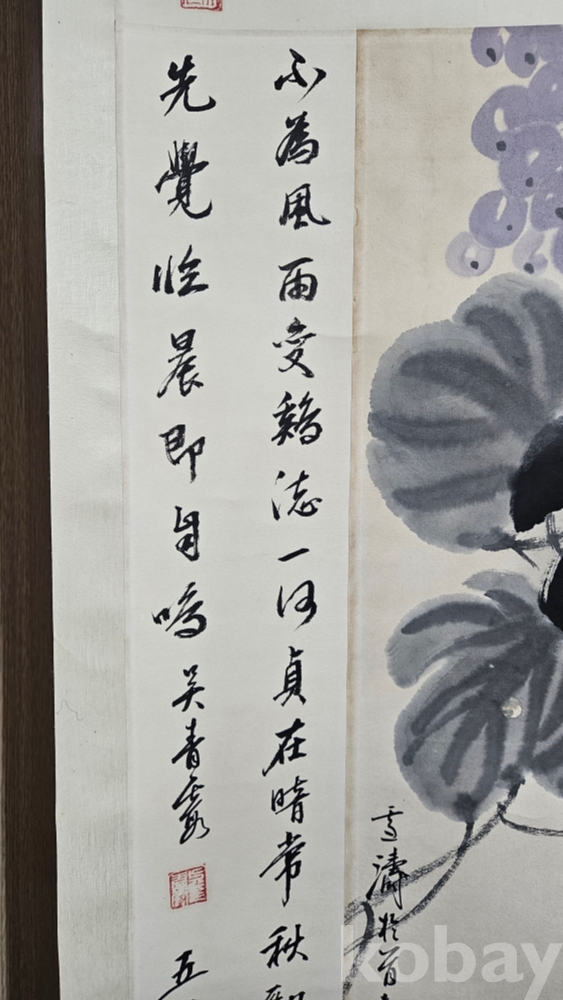 不為風雨变鷄誌一何貞在暗常
秋
先覺临晨即自鳴吴青霞
五
雪濤於首
kobay